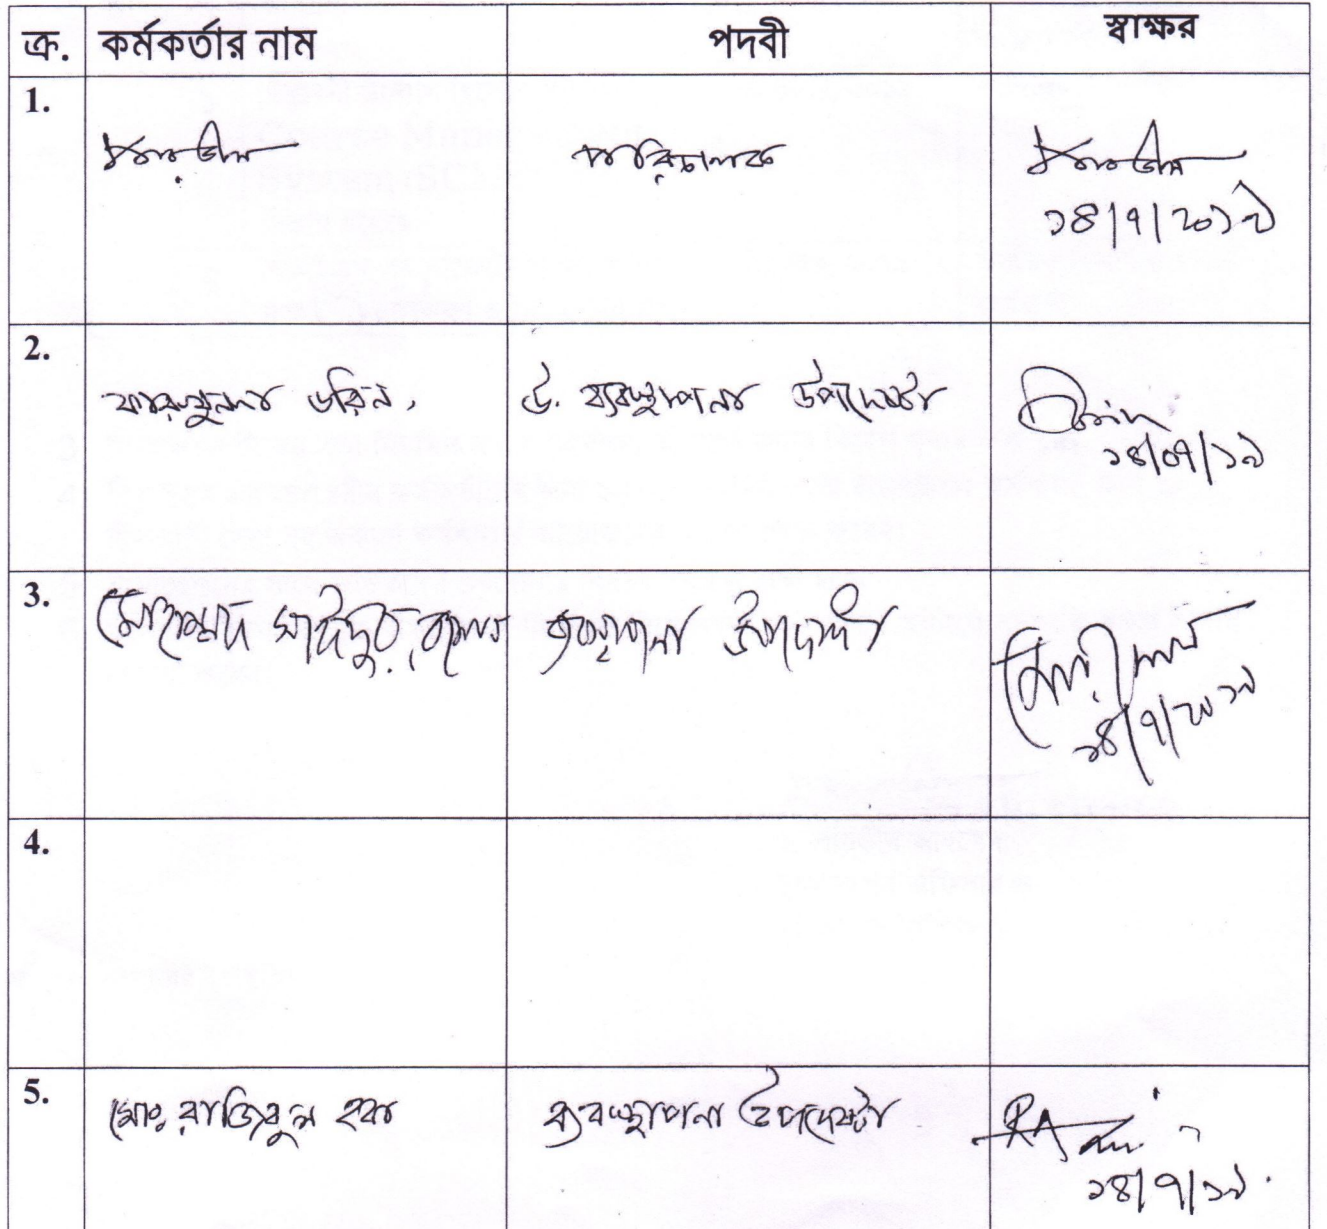 ক্র. কর্মকর্তার নাম পদবী স্বাক্ষর
1.
পরিচালক
১৪/৭/২০১৯
2.
ফারখুন্দা জরিন, উ. ব্যবস্থাপনা উপদেষ্টা
১৪/০৭/১৯
3. মোহাম্মদ সাইদুর রহমান ব্যবস্থাপনা উপদেষ্টা
১৪/৭/২০১৯
4.
5. মোঃ রাজিবুল হক ব্যবস্থাপনা উপদেষ্টা
১৪/৭/১৯.